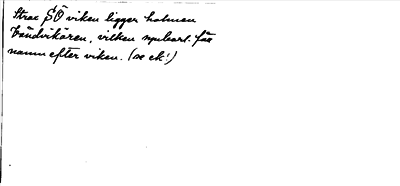 Strax SÖ viken ligger holmen
Tändvikären, vilken synbart. fått
namn efter viken. (se ek!)